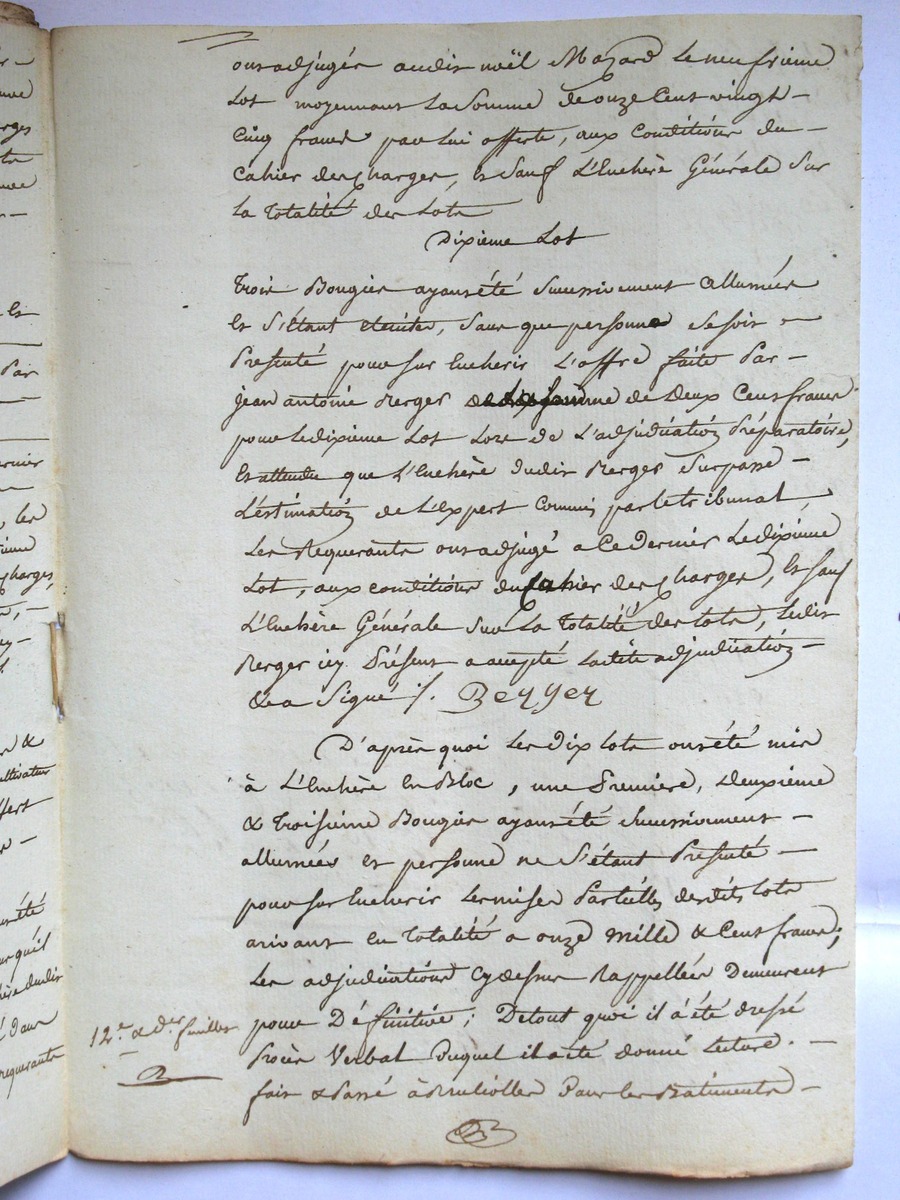 ont adjugés audit noël Mazard Le neufvieme
Lot moyennant La Somme de onze Cent vingt-
Cinq francs par lui offerte, aux Conditions du -
Cahier des Charges, et Sauf L'Enchère Générale Sur
La Totalité des Lots
Dixieme Lot
Trois Bougies ayant été Successivement allumées
Et S'étant éteintes, Sans que personne Se soit -
Présenté pour sur Encherir L'offre faite Par -
jean antoine Berger de deux Cent francs
pour Le dixième Lot Lors de L'adjudication Préparatoire,
Et attendu que L'Enchère dudit Berger Surpasse -
L'estimation de L'Expert Commis par le tribunal,
Les Requerants ont adjugé a Ce Dernier Le dixième
Lot, aux conditions du Cahier des Charges, Et sauf
L'Enchère Générale Sur La Totalité des lots, Ledit
Berger icy Présent a accepté Ladite adjudication -
& a Signé ./. Berger
D'après quoi Les Dix lots ont été mis
à L'Enchère En Bloc, une Premiere, Deuxieme
& Troisieme Bougies ayant été Successivement -
allumées et personne ne S'étant Présenté -
pour sur Encherir Les mises Partielles desdits lots
arivant En Totalité a onze mille & Cent francs;
Les adjudications Cy dessus Rappellées Demeurent
pour Définitive; De tout quoi il à été dressé
Procès Verbal Duquel il a été donné Lecture. -
fait & Passé à Dans les Bâtiments -
12.e & d.er feuillet